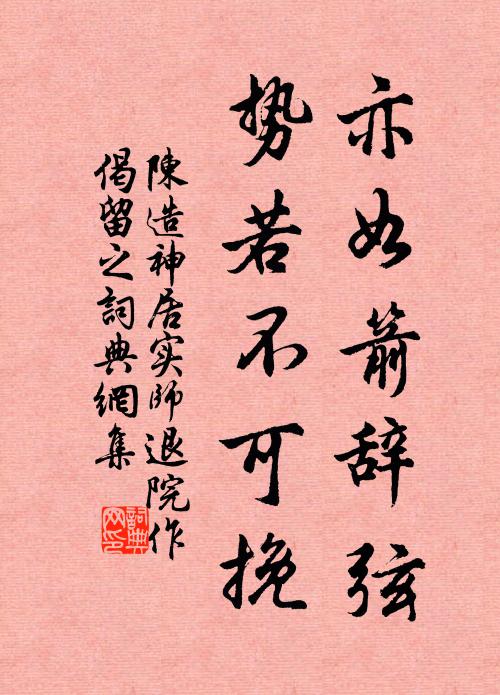 亦如箭辞弦
势若不可挽
陳造神居实师退院作
偈留之詞典網集
詞典网印